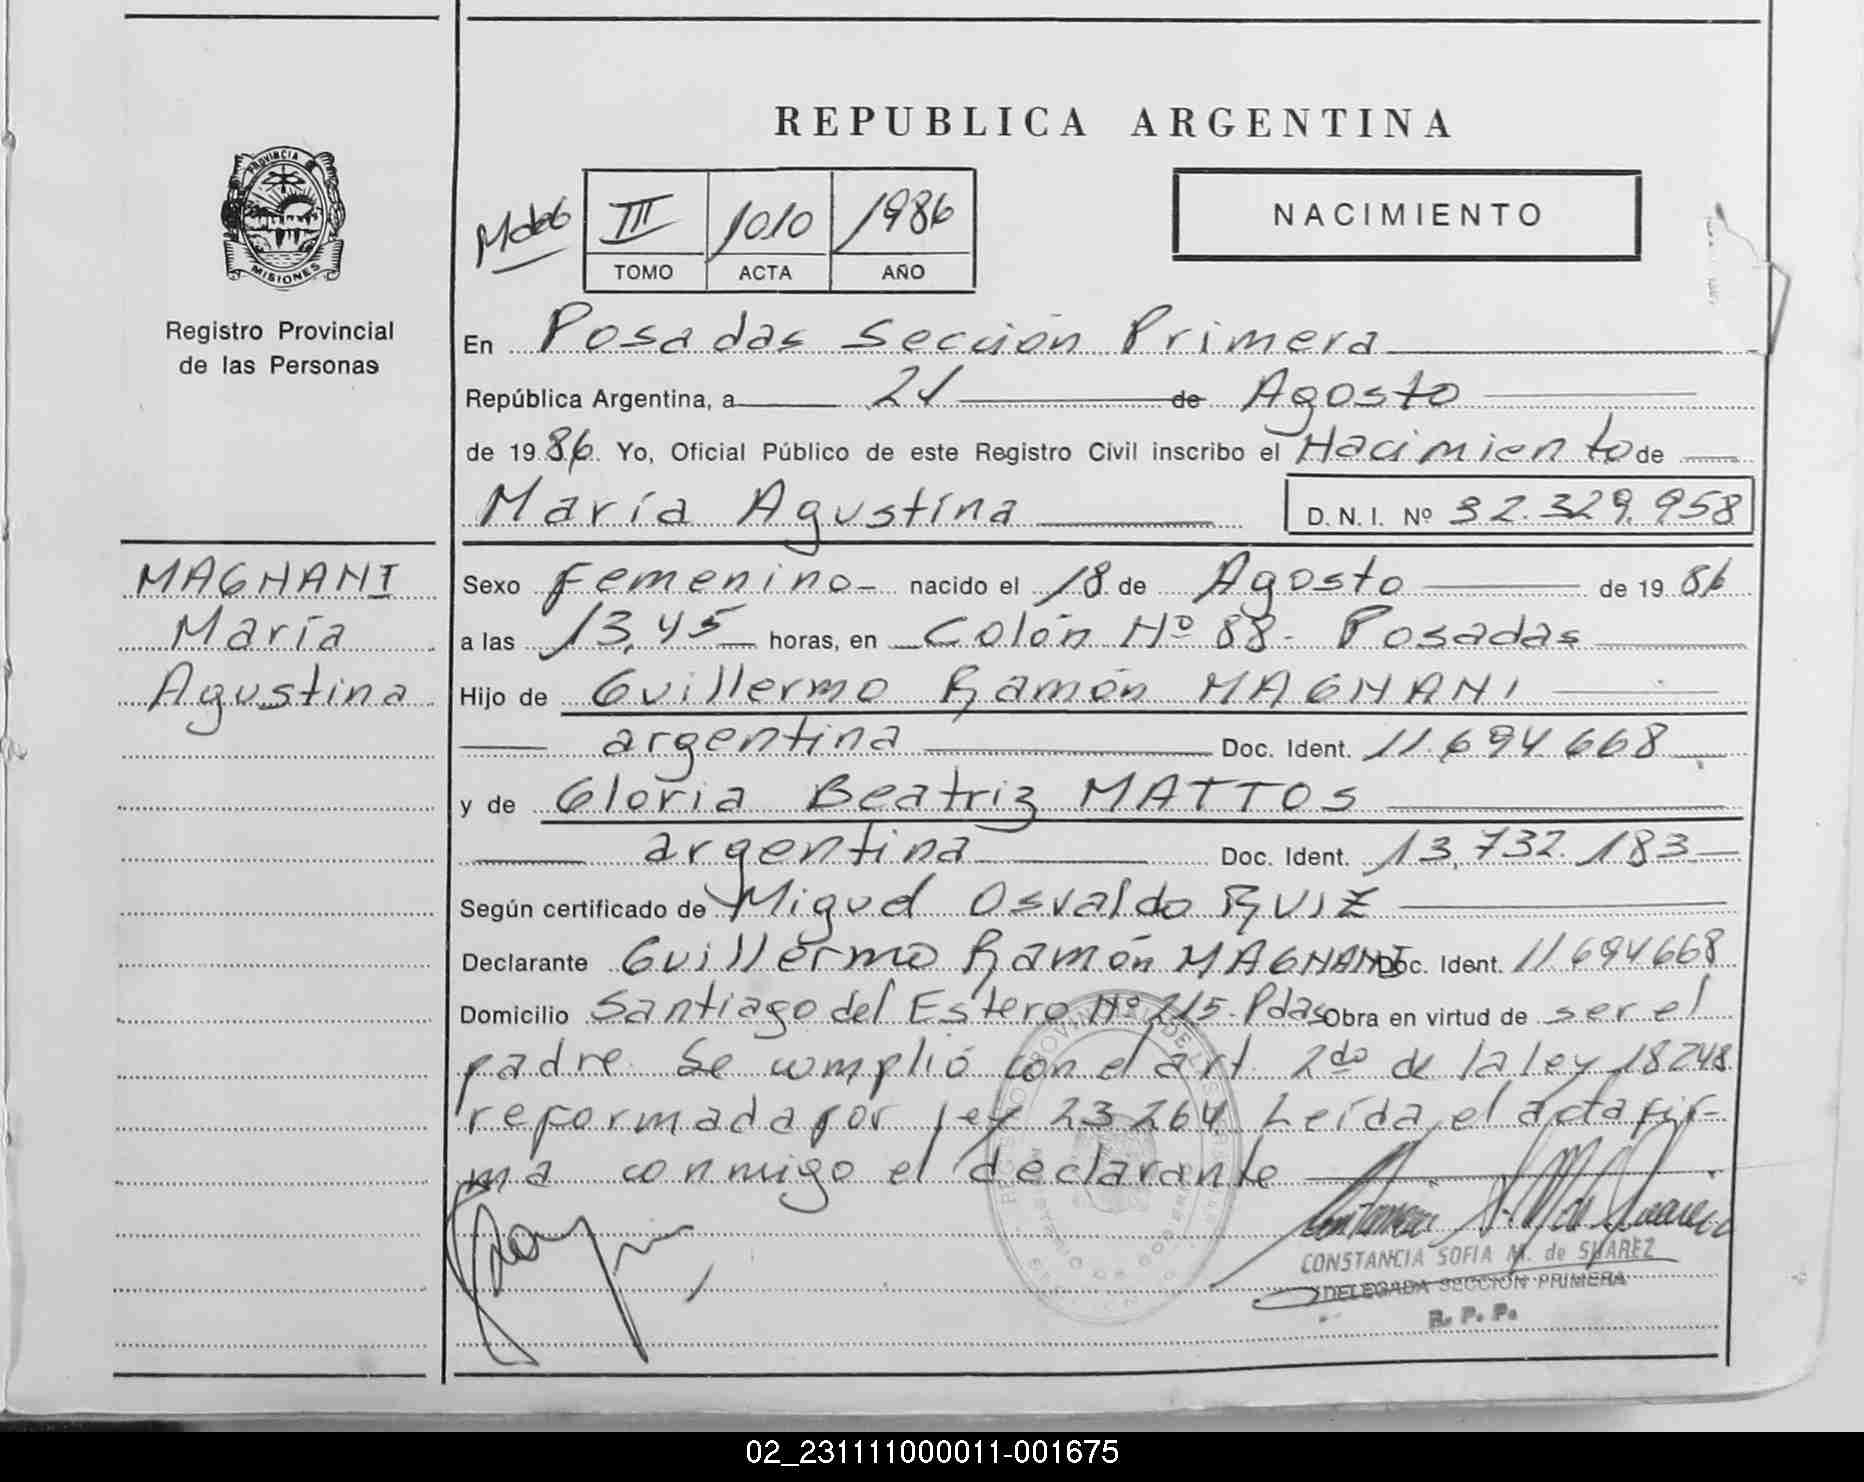 REPUBLICA ARGENTINA
PROVINCIA
MISIONES
Registro Provincial
de las Personas
III 1010 1986
TOMO ACTA AÑO
NACIMIENTO
En Posadas Sección Primera
República Argentina, a 21 de Agosto
de 1986 Yo, Oficial Público de este Registro Civil inscribo el Nacimiento de
María Agustina D.N.I. Nº 32.329.958
MAGNANI
María
Agustina
Sexo Femenino nacido el 18 de Agosto de 1986
a las 13,45 horas, en Colón Nº 88- Posadas
Hijo de Guillermo Ramón MAGNANI
argentina Doc. Ident. 11.694.668
y de Gloria Beatriz MATTOS
argentina Doc. Ident. 13,732.183
Según certificado de Miguel Osvaldo RUIZ
Declarante Guillermo Ramón MAGNANI Doc. Ident. 11694668
Domicilio Santiago del Estero Nº 215- Pdas Obra en virtud de ser el
padre. Se cumplió con el art. 2do de la ley 18248
reformada por ley 23264 Leída el acta fir-
ma conmigo el declarante
CONSTANCIA SOFIA M. de SUAREZ
DELEGADA SECCION PRIMERA
R. P. P.
02_231111000011-001675